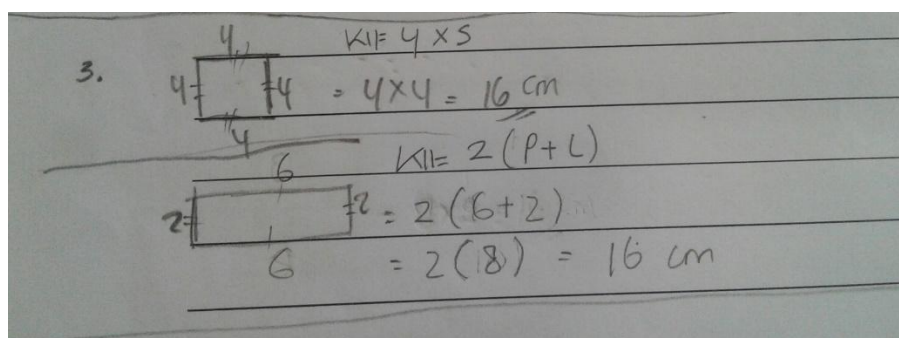 3.
4
4 4
4
Kll= 4 x S
= 4x4 = 16 cm
6
2 2
6
Kll= 2 (P+L)
= 2 (6+2)
= 2 (18) = 16 cm